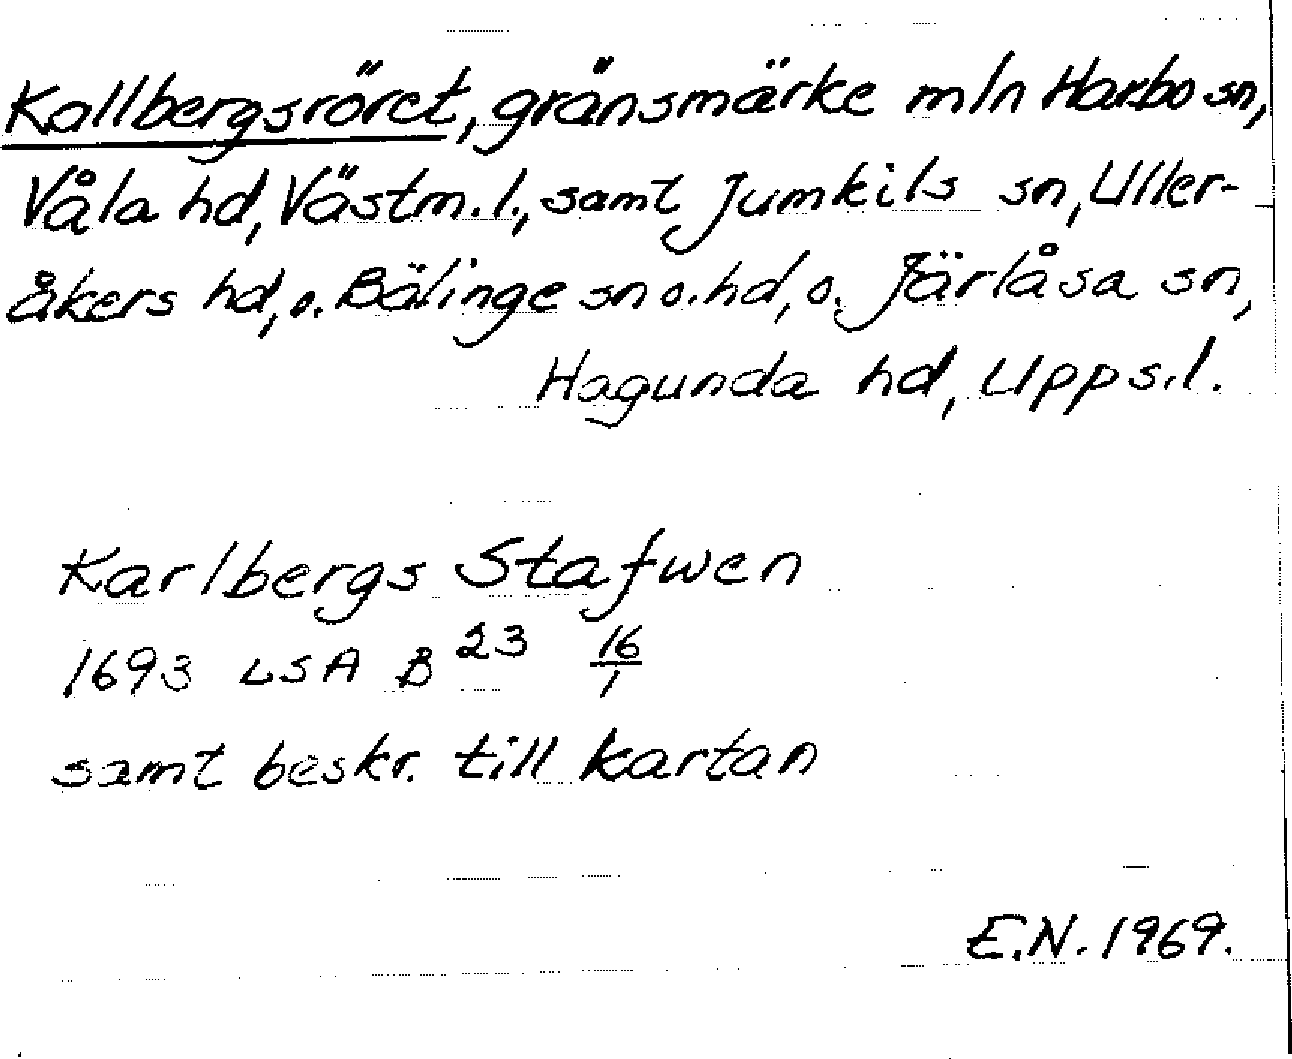 Kallbergsröret, gränsmärke mln Harbo sn,
Våla hd, Västm. l., samt Jumkils sn, Uller-
åkers hd, o. Bälinge sn o. hd, o. Järlåsa sn,
Hagunda hd, Upps. l.
Karlbergs Stafwen
1693 LSA B 23 16/1
samt beskr. till kartan
E.N. 1969.